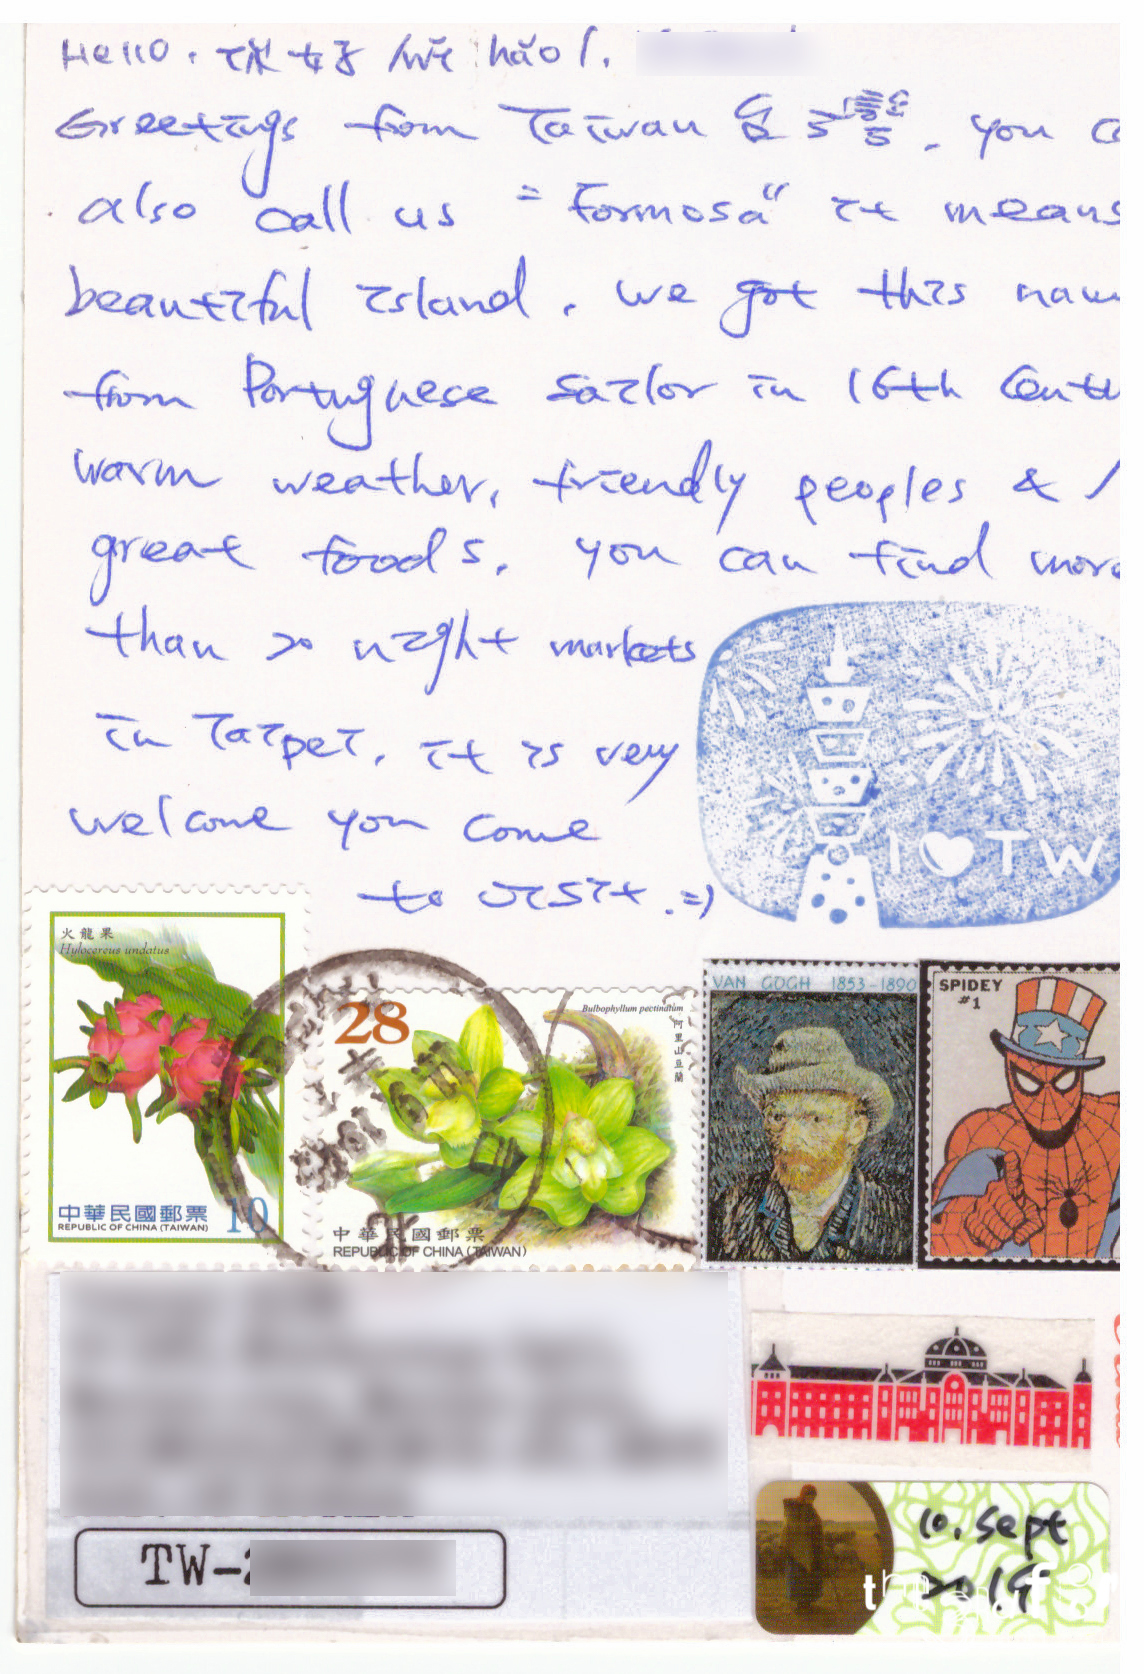 Hello. 你好 /nǐ hǎo/.
Greetings from Taiwan 台灣. you
also call us "Formosa" it means
beautiful island. we got this
from Portuguese sailor in 16th
warm weather, friendly peoples &
great foods. you can find more
than 20 night markets
in Taipei. it is very
welcome you come
to visit. =)
I TW
火龍果
Hylocereus undatus
中華民國郵票
REPUBLIC OF CHINA (TAIWAN)
10
28
Bulbophyllum pectinatum
阿里山豆蘭
中華民國郵票
REPUBLIC OF CHINA (TAIWAN)
VAN GOGH 1853-1890
SPIDEY
#1
TW-
10. Sept